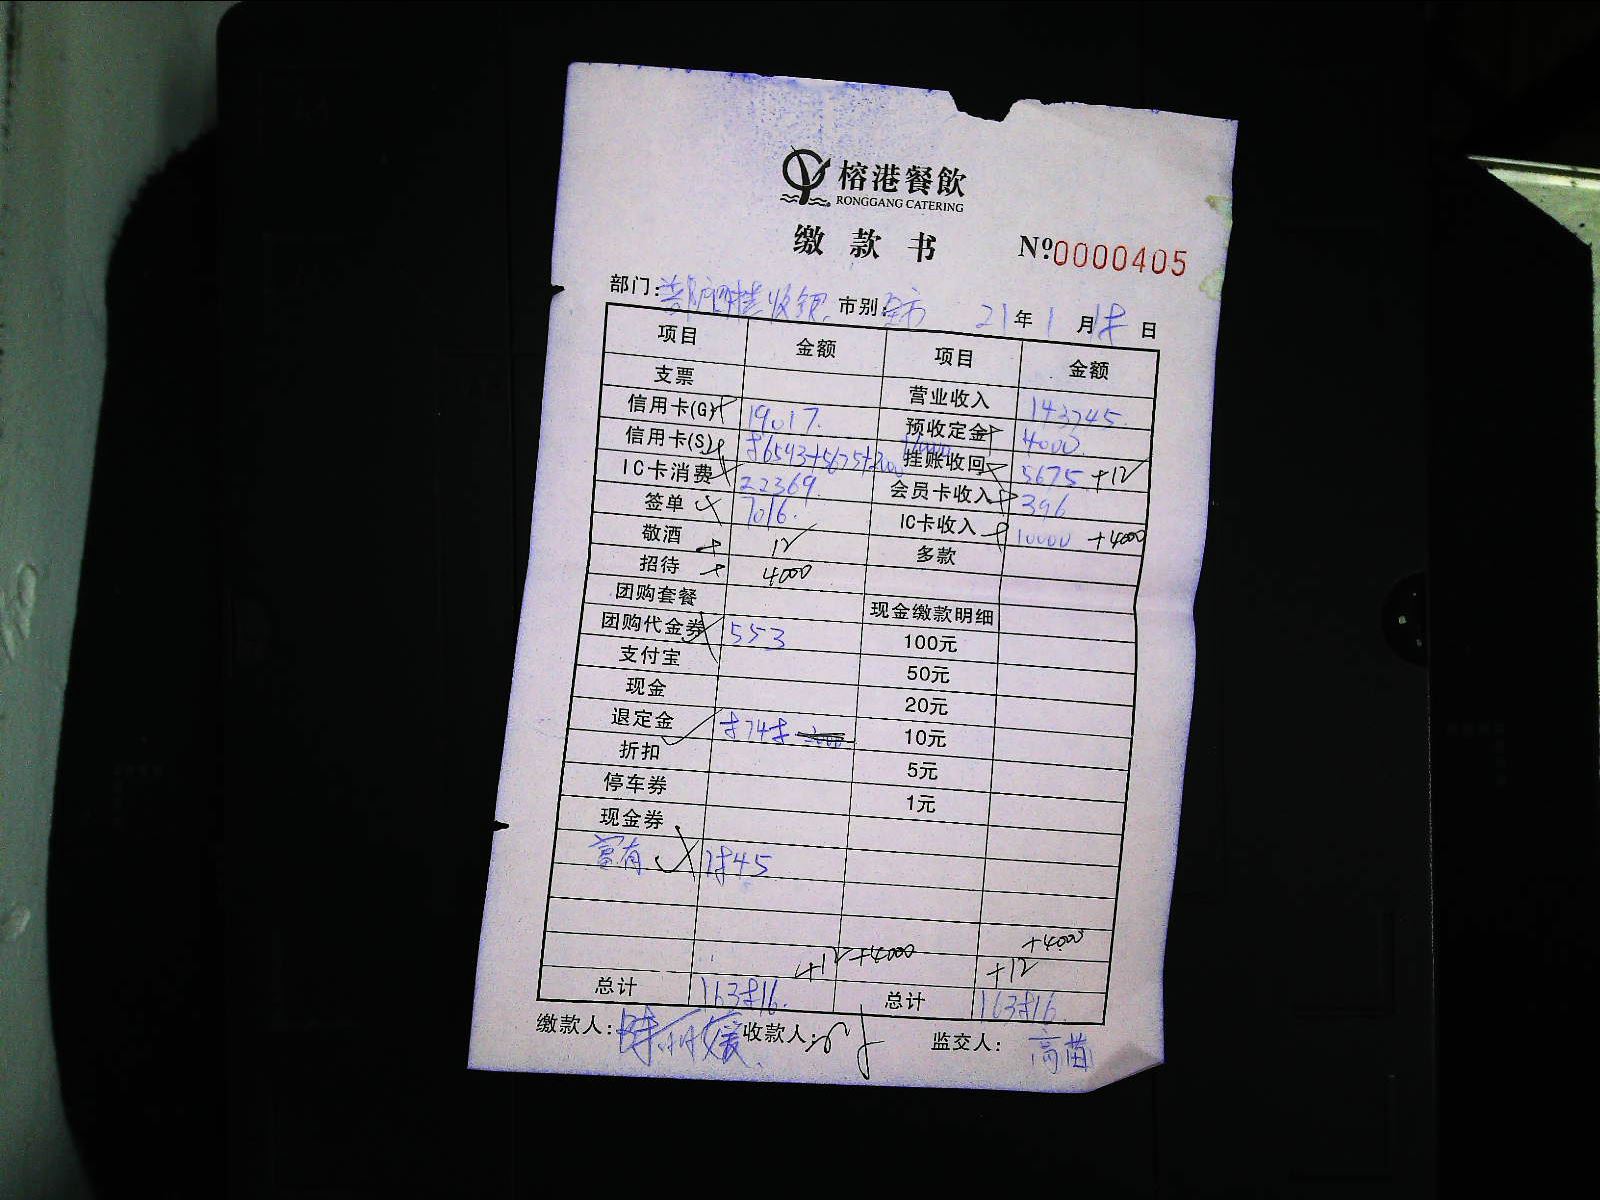 榕港餐飲
RONGGANG CATERING
缴款书 Nº0000405
部门: 市别: 21年1月 日
项目 金额 项目 金额
支票 营业收入 143745.
信用卡(G) 19017. 预收定金 4000.
信用卡(S) 86543+5675+2000 挂账收回 5675 +12
IC卡消费 22369. 会员卡收入 396
签单 7016. IC卡收入 10000 +4000
敬酒 12 多款
招待 4000
团购套餐 现金缴款明细
团购代金券 553 100元
支付宝 50元
现金 20元
退定金 8748 10元
折扣 5元
停车券 1元
现金券
富有 1845
+4000
+12 +4000 +12
总计 163816. 总计 163816.
缴款人: 收款人: 监交人: 高苗